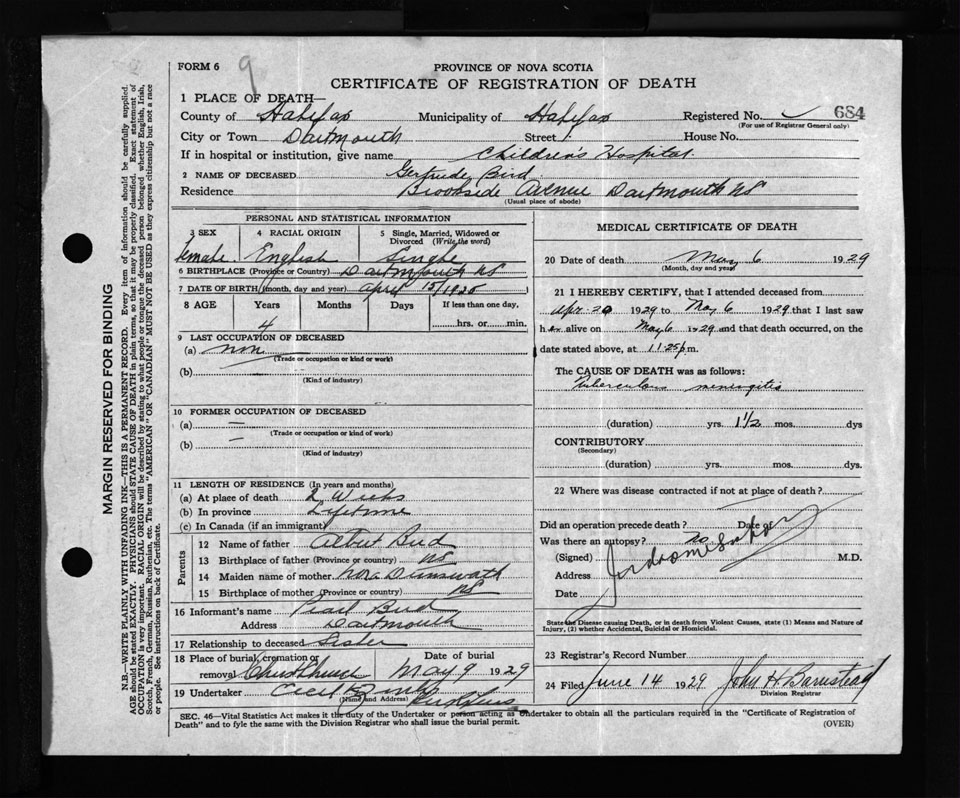 FORM 6
9
PROVINCE OF NOVA SCOTIA
CERTIFICATE OF REGISTRATION OF DEATH
1 PLACE OF DEATH—
County of Halifax Municipality of Halifax Registered No. 684
(For use of Registrar General only)
City or Town Dartmouth Street House No.
If in hospital or institution, give name Children's Hospital
2 NAME OF DECEASED Gertrude Bird
Residence Brookside Avenue Dartmouth NS
(Usual place of abode)
PERSONAL AND STATISTICAL INFORMATION
3 SEX 4 RACIAL ORIGIN 5 Single, Married, Widowed or Divorced (Write the word)
Female. English Single
6 BIRTHPLACE (Province or Country) Dartmouth NS
7 DATE OF BIRTH (Month, day and year) April 15/1925
8 AGE Years Months Days If less than one day,
4 hrs. or min.
9 LAST OCCUPATION OF DECEASED
(a) non
(Trade or occupation or kind or work)
(b)
(Kind of industry)
10 FORMER OCCUPATION OF DECEASED
(a) —
(Trade or occupation or kind of work)
(b) —
(Kind of industry)
11 LENGTH OF RESIDENCE (In years and months)
(a) At place of death 2 Weeks
(b) In province Lifetime
(c) In Canada (if an immigrant)
Parents
12 Name of father Albert Bird
13 Birthplace of father (Province or country) NS
14 Maiden name of mother Nora
15 Birthplace of mother (Province or country) NS
16 Informant's name Pearl Bird
Address Dartmouth
17 Relationship to deceased Sister
18 Place of burial, cremation or removal Date of burial
Christ Church May 9 1929
19 Undertaker Cecil Zink
(Name and Address)
MEDICAL CERTIFICATE OF DEATH
20 Date of death May 6 1929
(Month, day and year)
21 I HEREBY CERTIFY, that I attended deceased from
Apr. 20 1929 to May 6 1929 that I last saw
her alive on May 6 1929 and that death occurred, on the
date stated above, at 11.25 p.m.
The CAUSE OF DEATH was as follows:
Tuberculous meningitis
(duration) yrs. 1½ mos. dys
CONTRIBUTORY
(Secondary)
(duration) yrs. mos. dys.
22 Where was disease contracted if not at place of death?
Did an operation precede death? Date of
Was there an autopsy? No
(Signed) M.D.
Address
Date
State the Disease causing Death, or in death from Violent Causes, state (1) Means and Nature of
Injury, (2) whether Accidental, Suicidal or Homicidal.
23 Registrar's Record Number
24 Filed June 14 1929 John H Barnstead
Division Registrar
SEC. 46—Vital Statistics Act makes it the duty of the Undertaker or person acting as Undertaker to obtain all the particulars required in the "Certificate of Registration of
Death" and to fyle the same with the Division Registrar who shall issue the burial permit.
(OVER)
MARGIN RESERVED FOR BINDING
N.B.—WRITE PLAINLY WITH UNFADING INK—THIS IS A PERMANENT RECORD. Every item of information should be carefully supplied.
AGE should be stated EXACTLY. PHYSICIANS should STATE CAUSE OF DEATH in plain terms, so that it may be properly classified. Exact statement of
OCCUPATION is very important. RACIAL ORIGIN will be described by stating to what people or tongue the deceased person belonged whether English, Irish,
Scotch, French, German, Russian, Ruthenian, etc. The terms "AMERICAN" OR "CANADIAN" MUST NOT BE USED as they express citizenship but not a race
or people. See instructions on back of Certificate.